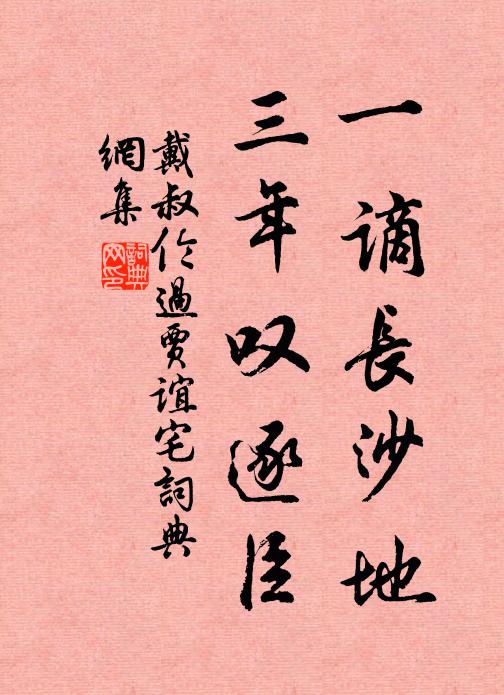 一謫長沙地
三年叹逐臣
戴叔伦過賈誼宅詞典
網集
詞典
网印